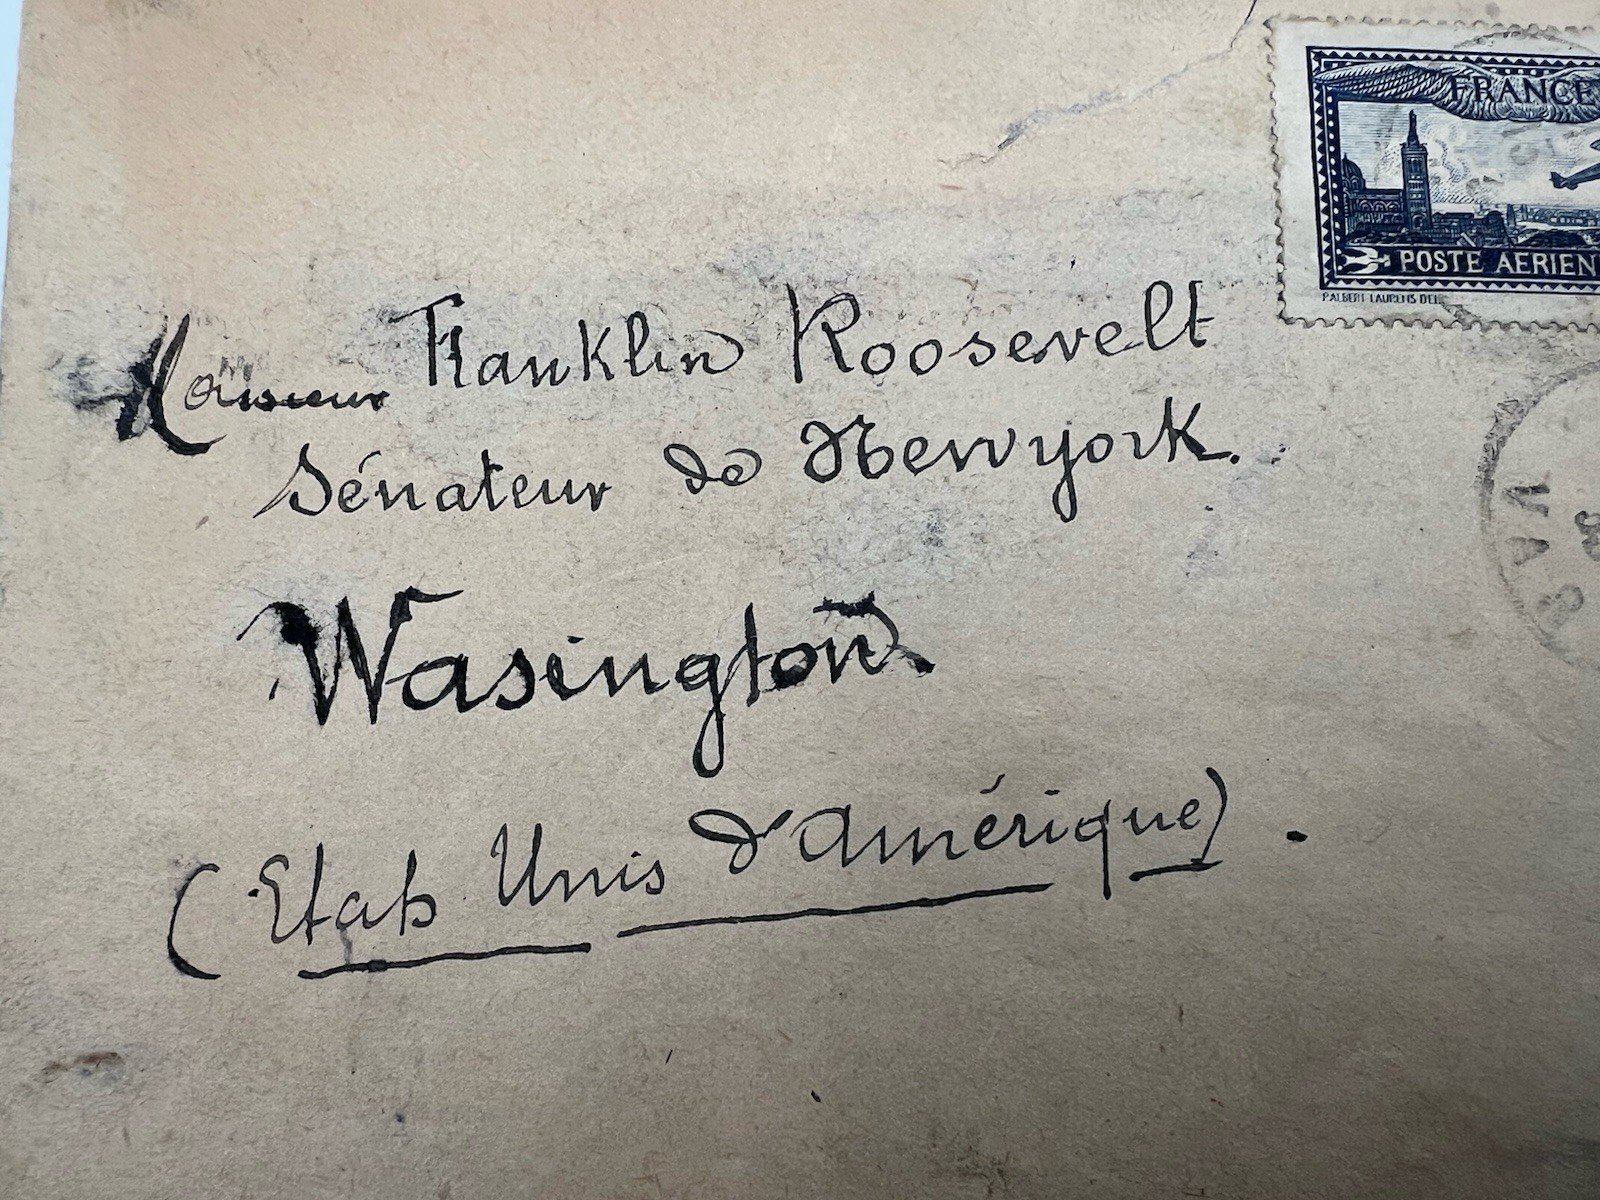 FRANCE
POSTE AERIEN
P. ALBERT LAURENS DEL.
Monsieur Franklin Roosevelt
Sénateur de Newyork.
VAR
Wasington.
(Etats Unis d'Amérique).